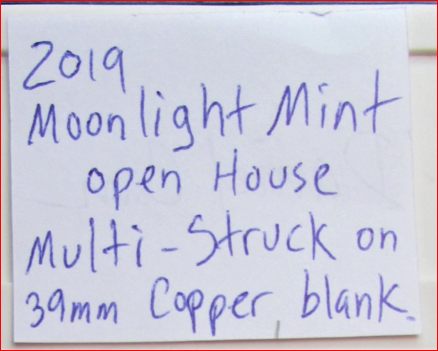 2019
Moonlight Mint
open House
Multi-Struck on
39mm Copper blank.